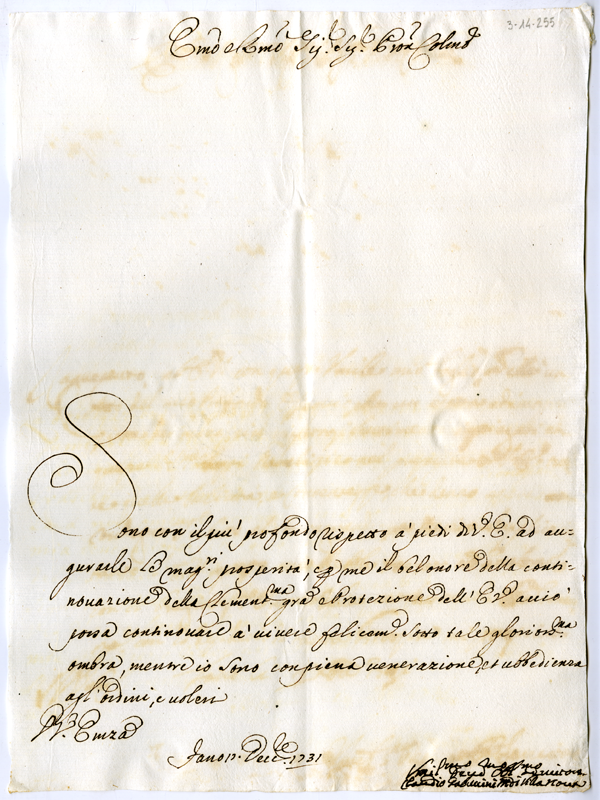 3-14-255
Em̃o e Rm̃o Sig.re Sig.re Pron Colmo
Sono con il più profondo rispetto a' piedi di V. E. ad au=
gurarle le mag.ri prosperità, e p me il bel onore della conti=
nouazione della Clement.ma gra e Protezione dell' E. V. acciò
possa continouare a' vivere felicem.e sotto tale glorios.ma
ombra, mentre io sono con piena venerazione, et ubbedienza
agl' ordini, e voleri
D V. Emza
Fano 17. Decbre 1731
Umil.mo